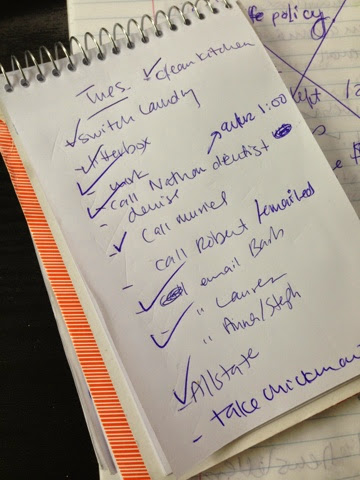 Tues. ✓ clean kitchen
✓ switch laundry
✓ litterbox
✓ work
✓ call Nathan dentist → after 1:00
- dentist
✓ call Muriel
- call Robert / emailed
✓ email Barb
✓ " Lauren
" Anne/Steph
✓ Allstate
- take chicken
fe policy
left